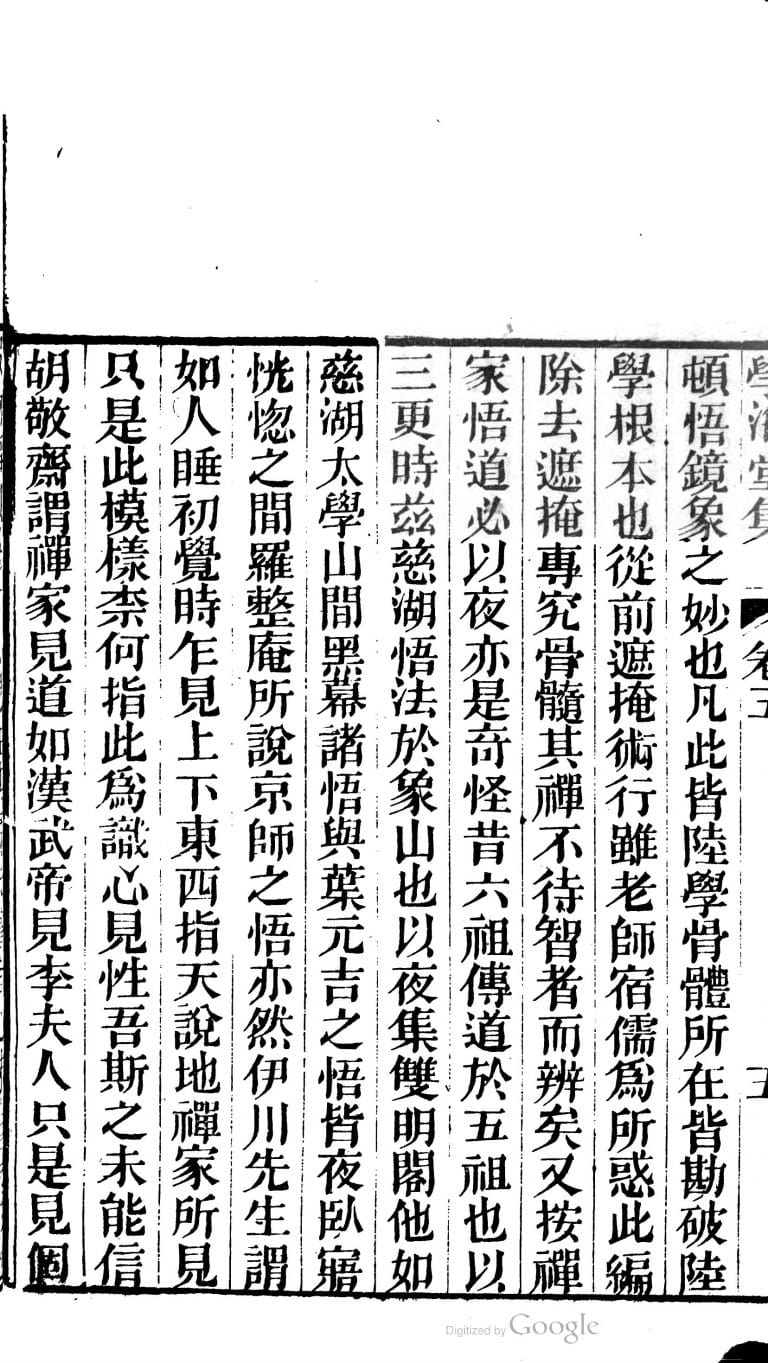 頓悟鏡象之妙也凡此皆陸學骨體所在皆勘破陸
學根本也從前遮掩術行雖老師宿儒爲所惑此編
除去遮掩專究骨髓其禪不待智者而辨矣又按禪
家悟道必以夜亦是奇怪昔六祖傳道於五祖也以
三更時玆慈湖悟法於象山也以夜集雙明閣他如
慈湖太學山間黑幕諸悟與葉元吉之悟皆夜臥寤
恍惚之間羅整庵所說京師之悟亦然伊川先生謂
如人睡初覺時乍見上下東西指天說地禪家所見
只是此模樣柰何指此爲識心見性吾斯之未能信
胡敬齋謂禪家見道如漢武帝見李夫人只是見個
Digitized by Google